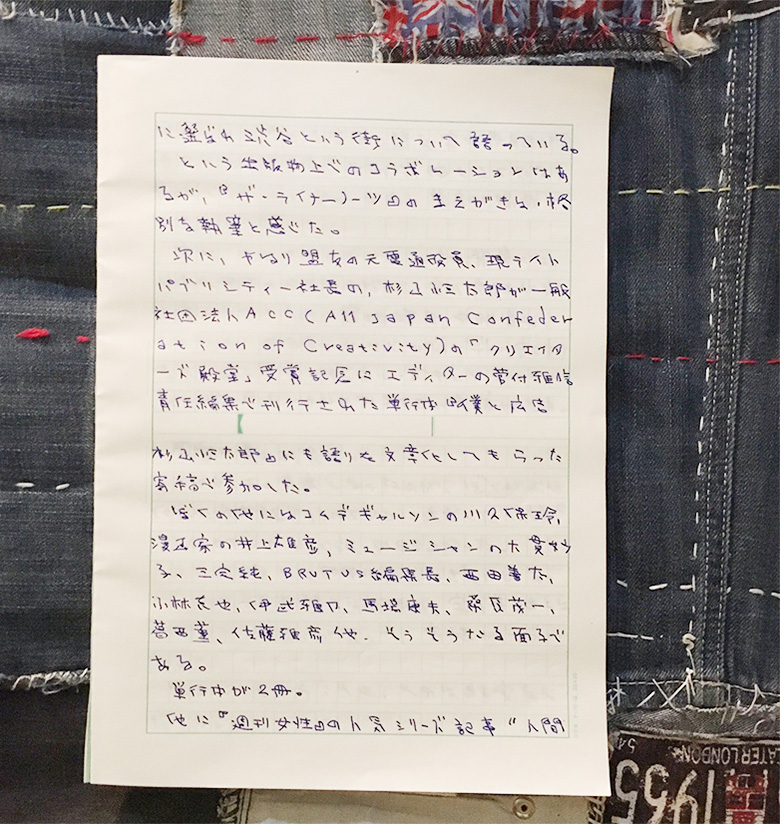 に盤され渋谷という街について語っている。
という出版物上でのコラボレーションはあ
るが、『ザ・ライナーノーツ』のまえがきは・格
別な執筆と感じた。
次に、やはり盟友の元電通役員、現ライト
パブリシティー社長の、杉山恒太郎が一般
社団法人ACC(All Japan Confeder
ation of Creativity)の「クリエイタ
ーズ殿堂」受賞記念にエディターの菅付雅信
責任編集で刊行された単行本『僕と広告
杉山恒太郎』にも語りを文章化してもらった
寄稿で参加した。
ぼくの他にはコムデギャルソンの川久保玲、
漫画家の井上雄彦、ミュージシャンの大貫妙
子、三宅純、BRUTUS編集長、西田善太、
小林克也、伊武雅刀、馬場康夫、桑原茂一、
葛西薫、佐藤雅彦他、そうそうたる面子で
ある。
単行本が2冊。
他に『週刊女性』の人気シリーズ記事“人間
CATER LONDON
54
1955